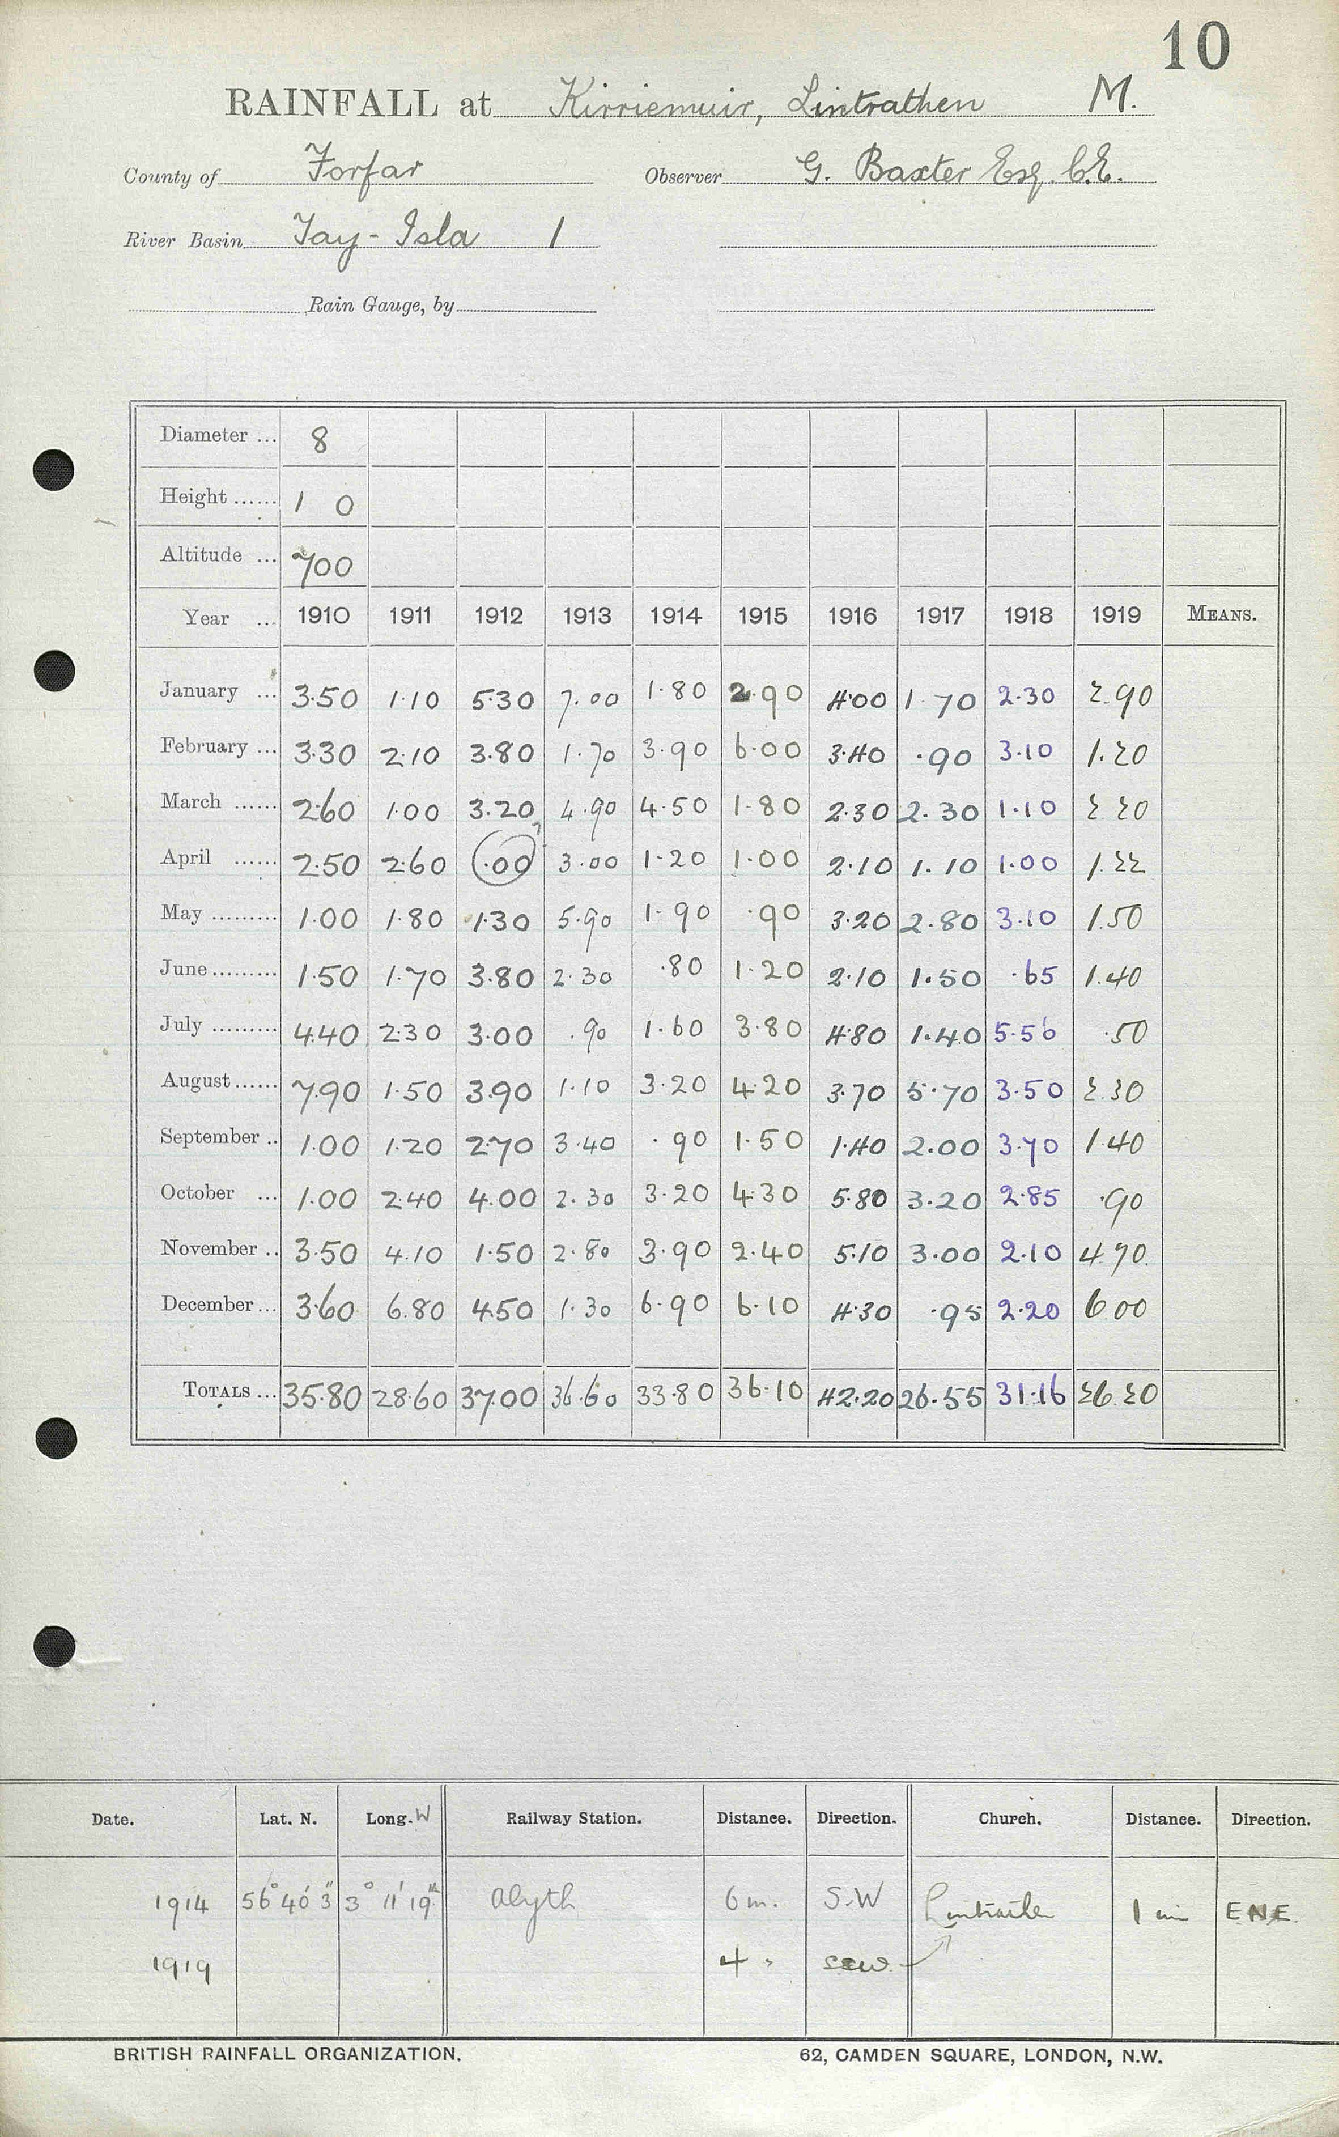 10
RAINFALL at Kirriemuir, Lintrathen M.
County of Forfar Observer G. Baxter Esq. C.E.
River Basin Tay - Isla 1
Rain Gauge, by
Diameter ... 8
Height ...... 1 0
Altitude ... 700
Year ... 1910 1911 1912 1913 1914 1915 1916 1917 1918 1919 MEANS.
January ... 3.50 1.10 5.30 7.00 1.80 2.90 4.00 1.70 2.30 2.90
February ... 3.30 2.10 3.80 1.70 3.90 6.00 3.40 .90 3.10 1.20
March ...... 2.60 1.00 3.20 4.90 4.50 1.80 2.30 2.30 1.10 2.20
April ...... 2.50 2.60 .00 ? 3.00 1.20 1.00 2.10 1.10 1.00 1.22
May ......... 1.00 1.80 1.30 5.90 1.90 .90 3.20 2.80 3.10 1.50
June ......... 1.50 1.70 3.80 2.30 .80 1.20 2.10 1.50 .65 1.40
July ......... 4.40 2.30 3.00 .90 1.60 3.80 4.80 1.40 5.56 .50
August ...... 7.90 1.50 3.90 1.10 3.20 4.20 3.70 5.70 3.50 2.30
September .. 1.00 1.20 2.70 3.40 .90 1.50 1.40 2.00 3.70 1.40
October ... 1.00 2.40 4.00 2.30 3.20 4.30 5.80 3.20 2.85 .90
November .. 3.50 4.10 1.50 2.80 3.90 2.40 5.10 3.00 2.10 4.70
December ... 3.60 6.80 4.50 1.30 6.90 6.10 4.30 .95 2.20 6.00
TOTALS ... 35.80 28.60 37.00 36.60 33.80 36.10 42.20 26.55 31.16 26.20
Date. Lat. N. Long. W Railway Station. Distance. Direction. Church. Distance. Direction.
1914 56° 40' 3" 3° 11' 19" Alyth 6 m. S.W Lintrathen 1 mi ENE.
1919 4 "
BRITISH RAINFALL ORGANIZATION. 62, CAMDEN SQUARE, LONDON, N.W.